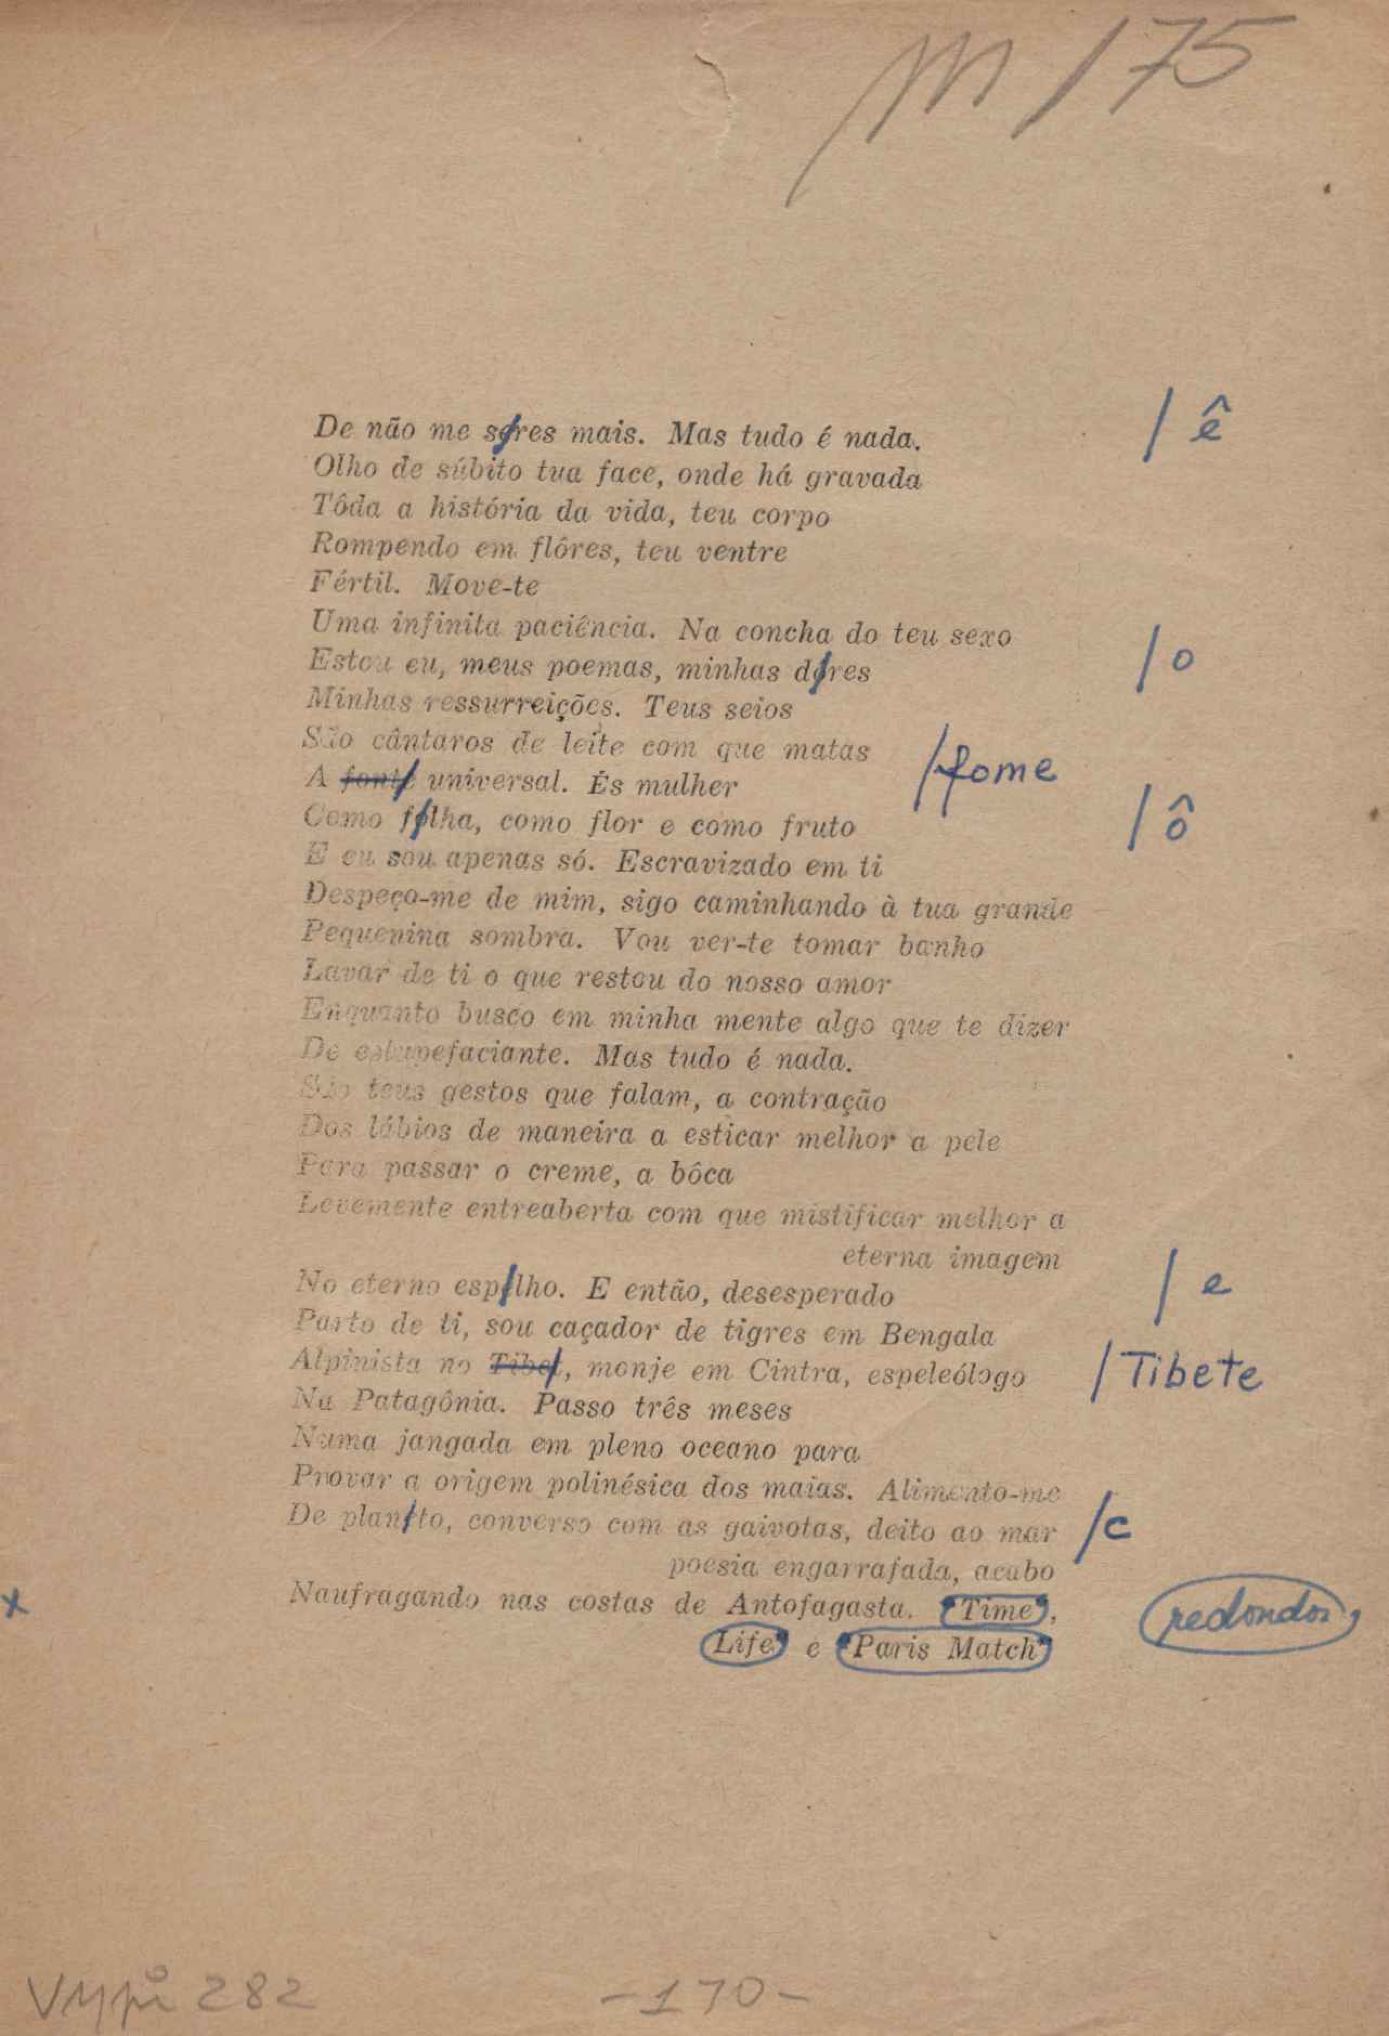 M/175
De não me seres mais. Mas tudo é nada. / ê
Olho de súbito tua face, onde há gravada
Tôda a história da vida, teu corpo
Rompendo em flôres, teu ventre
Fértil. Move-te
Uma infinita paciência. Na concha do teu sexo
Estou eu, meus poemas, minhas dores / o
Minhas ressurreições. Teus seios
São cântaros de leite com que matas
A fonte universal. És mulher / fome
Como folha, como flor e como fruto / ô
E eu sou apenas só. Escravizado em ti
Despeço-me de mim, sigo caminhando à tua grande
Pequenina sombra. Vou ver-te tomar banho
Lavar de ti o que restou do nosso amor
Enquanto busco em minha mente algo que te dizer
De estupefaciante. Mas tudo é nada.
São teus gestos que falam, a contração
Dos lábios de maneira a esticar melhor a pele
Para passar o creme, a bôca
Levemente entreaberta com que mistificar melhor a
eterna imagem
No eterno espelho. E então, desesperado / e
Parto de ti, sou caçador de tigres em Bengala
Alpinista no Tibet, monje em Cintra, espeleólogo / Tibete
Na Patagônia. Passo três meses
Numa jangada em pleno oceano para
Provar a origem polinésica dos maias. Alimento-me
De plancto, converso com as gaivotas, deito ao mar / c
poesia engarrafada, acabo
x Naufragando nas costas de Antofagasta. "Time", redondos,
Life" e "Paris Match"
282 -170-